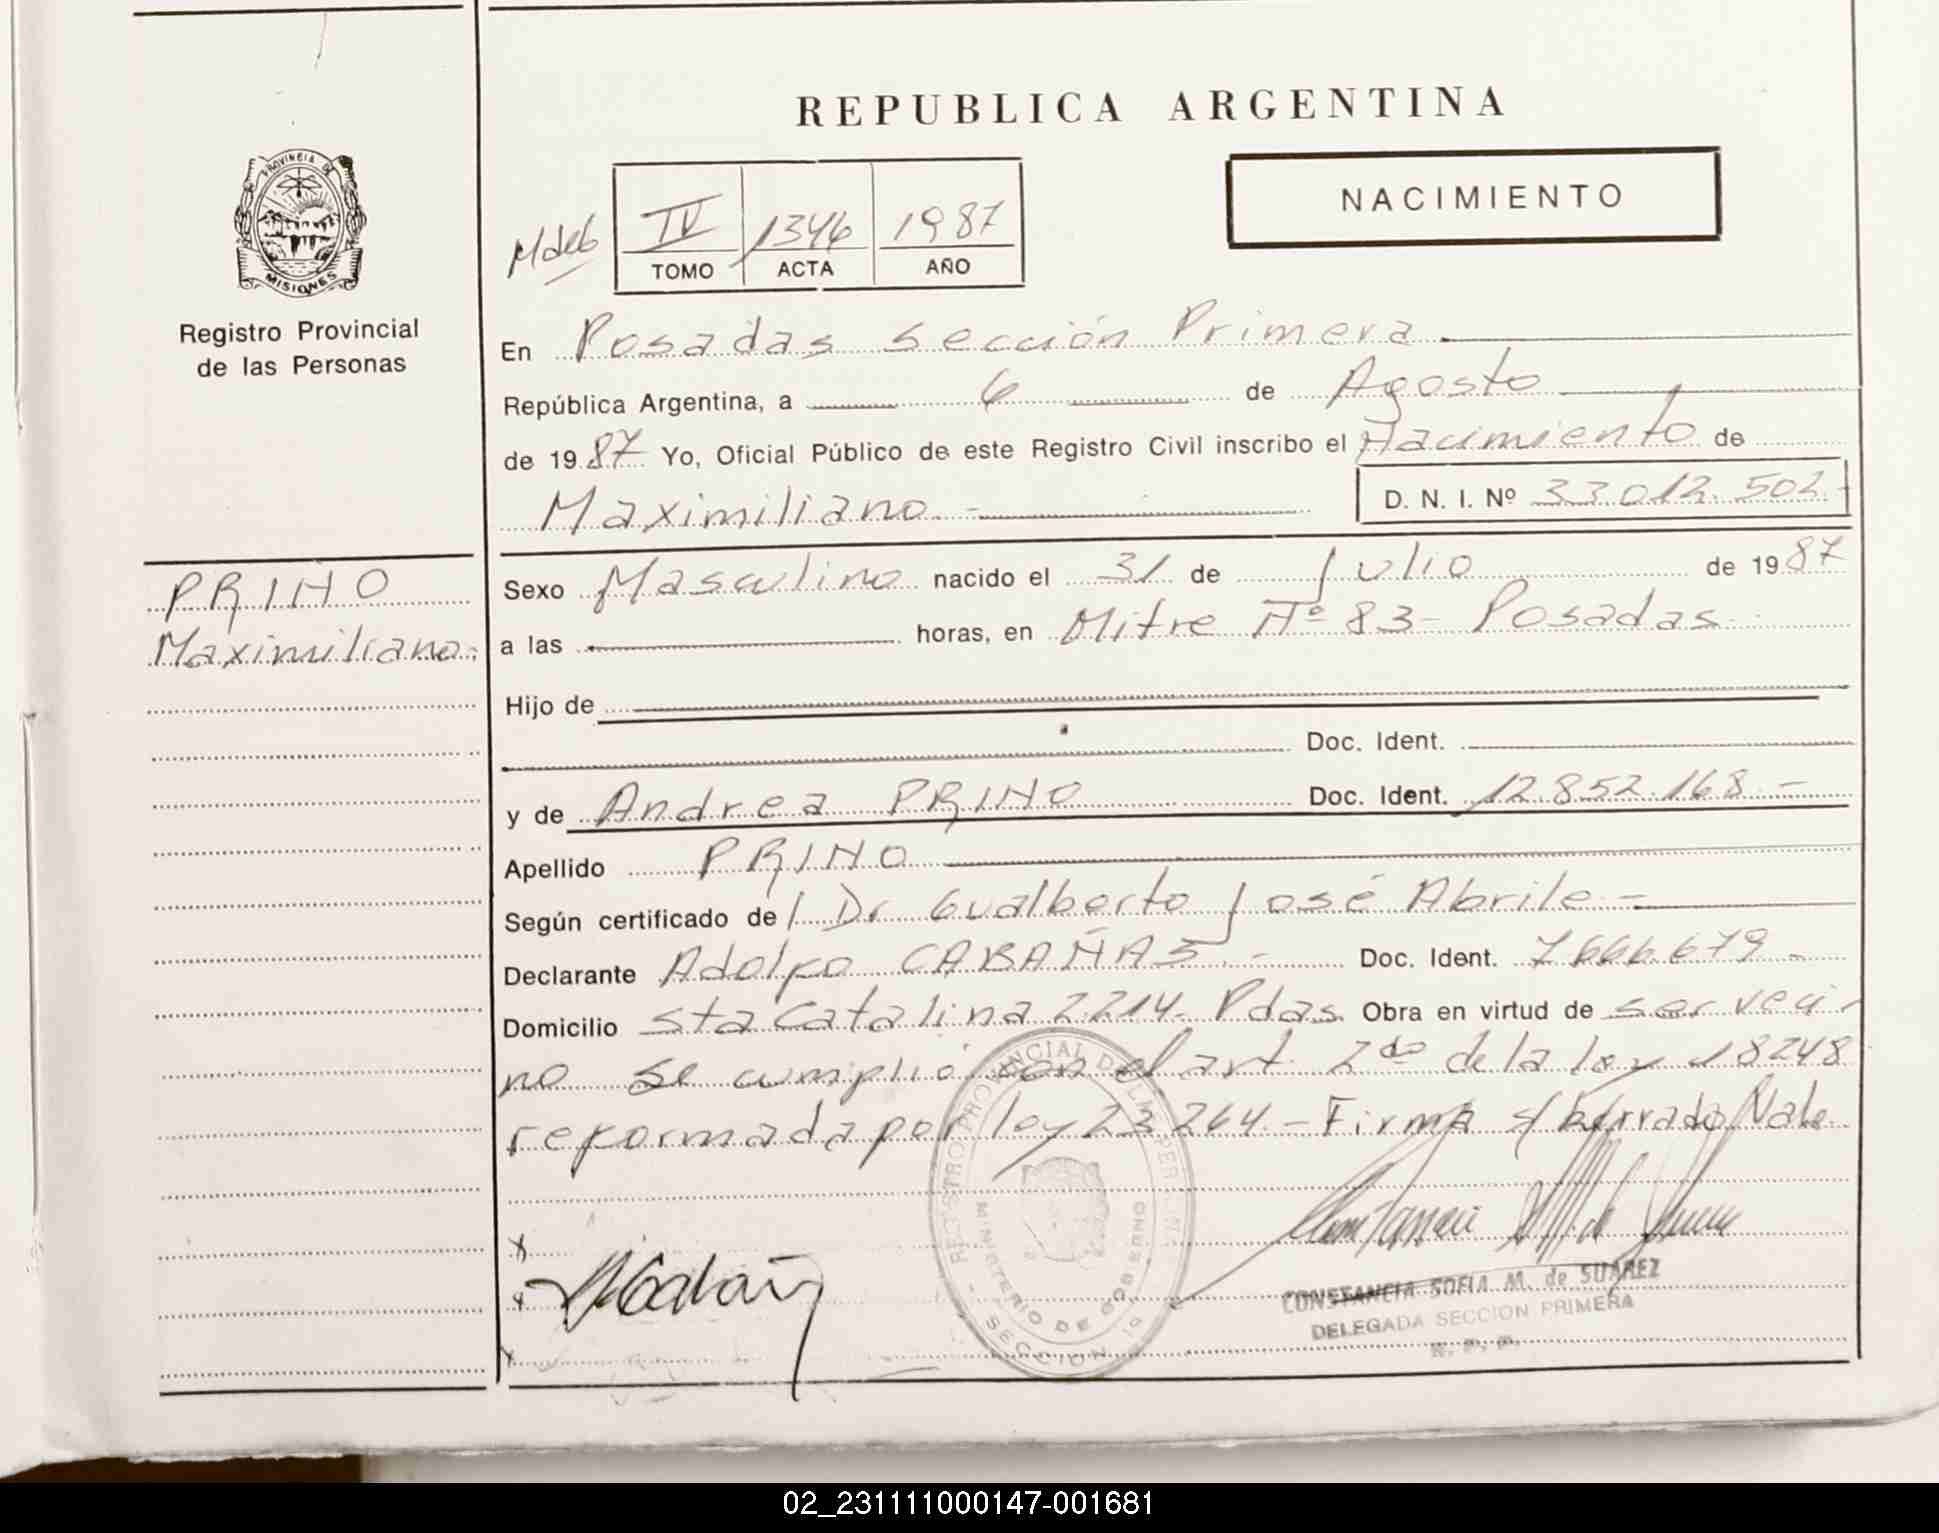 REPUBLICA ARGENTINA
NACIMIENTO
PROVINCIA DE
MISIONES
Registro Provincial
de las Personas
Mdeb
IV 1346 1987
TOMO ACTA AÑO
En Posadas sección Primera
República Argentina, a 6 de Agosto
de 1987 Yo, Oficial Público de este Registro Civil inscribo el Nacimiento de
Maximiliano.- D. N. I. Nº 33012.502.-
PRINO
Maximiliano.
Sexo Masculino nacido el 31 de Julio de 1987
a las horas, en Mitre Nº 83- Posadas
Hijo de
Doc. Ident.
y de Andrea PRINO Doc. Ident. 12.852.168.-
Apellido PRINO
Según certificado de/ Dr Gualberto José Abrile.-
Declarante Adolfo CABAÑAS.- Doc. Ident. 7.666.679.-
Domicilio Sta Catalina 2214. Pdas. Obra en virtud de ser veci-
no se cumplió con el art. 2do de la ley 18248
reformada por ley 23264.- Firma s/ borrado Vale
REGISTRO PROVINCIAL DE LAS PERSONAS
MINISTERIO DE GOBIERNO
- SECCION 1a -
CONSTANCIA SOFIA M. de SUAREZ
DELEGADA SECCION PRIMERA
R. P. P.
02_231111000147-001681